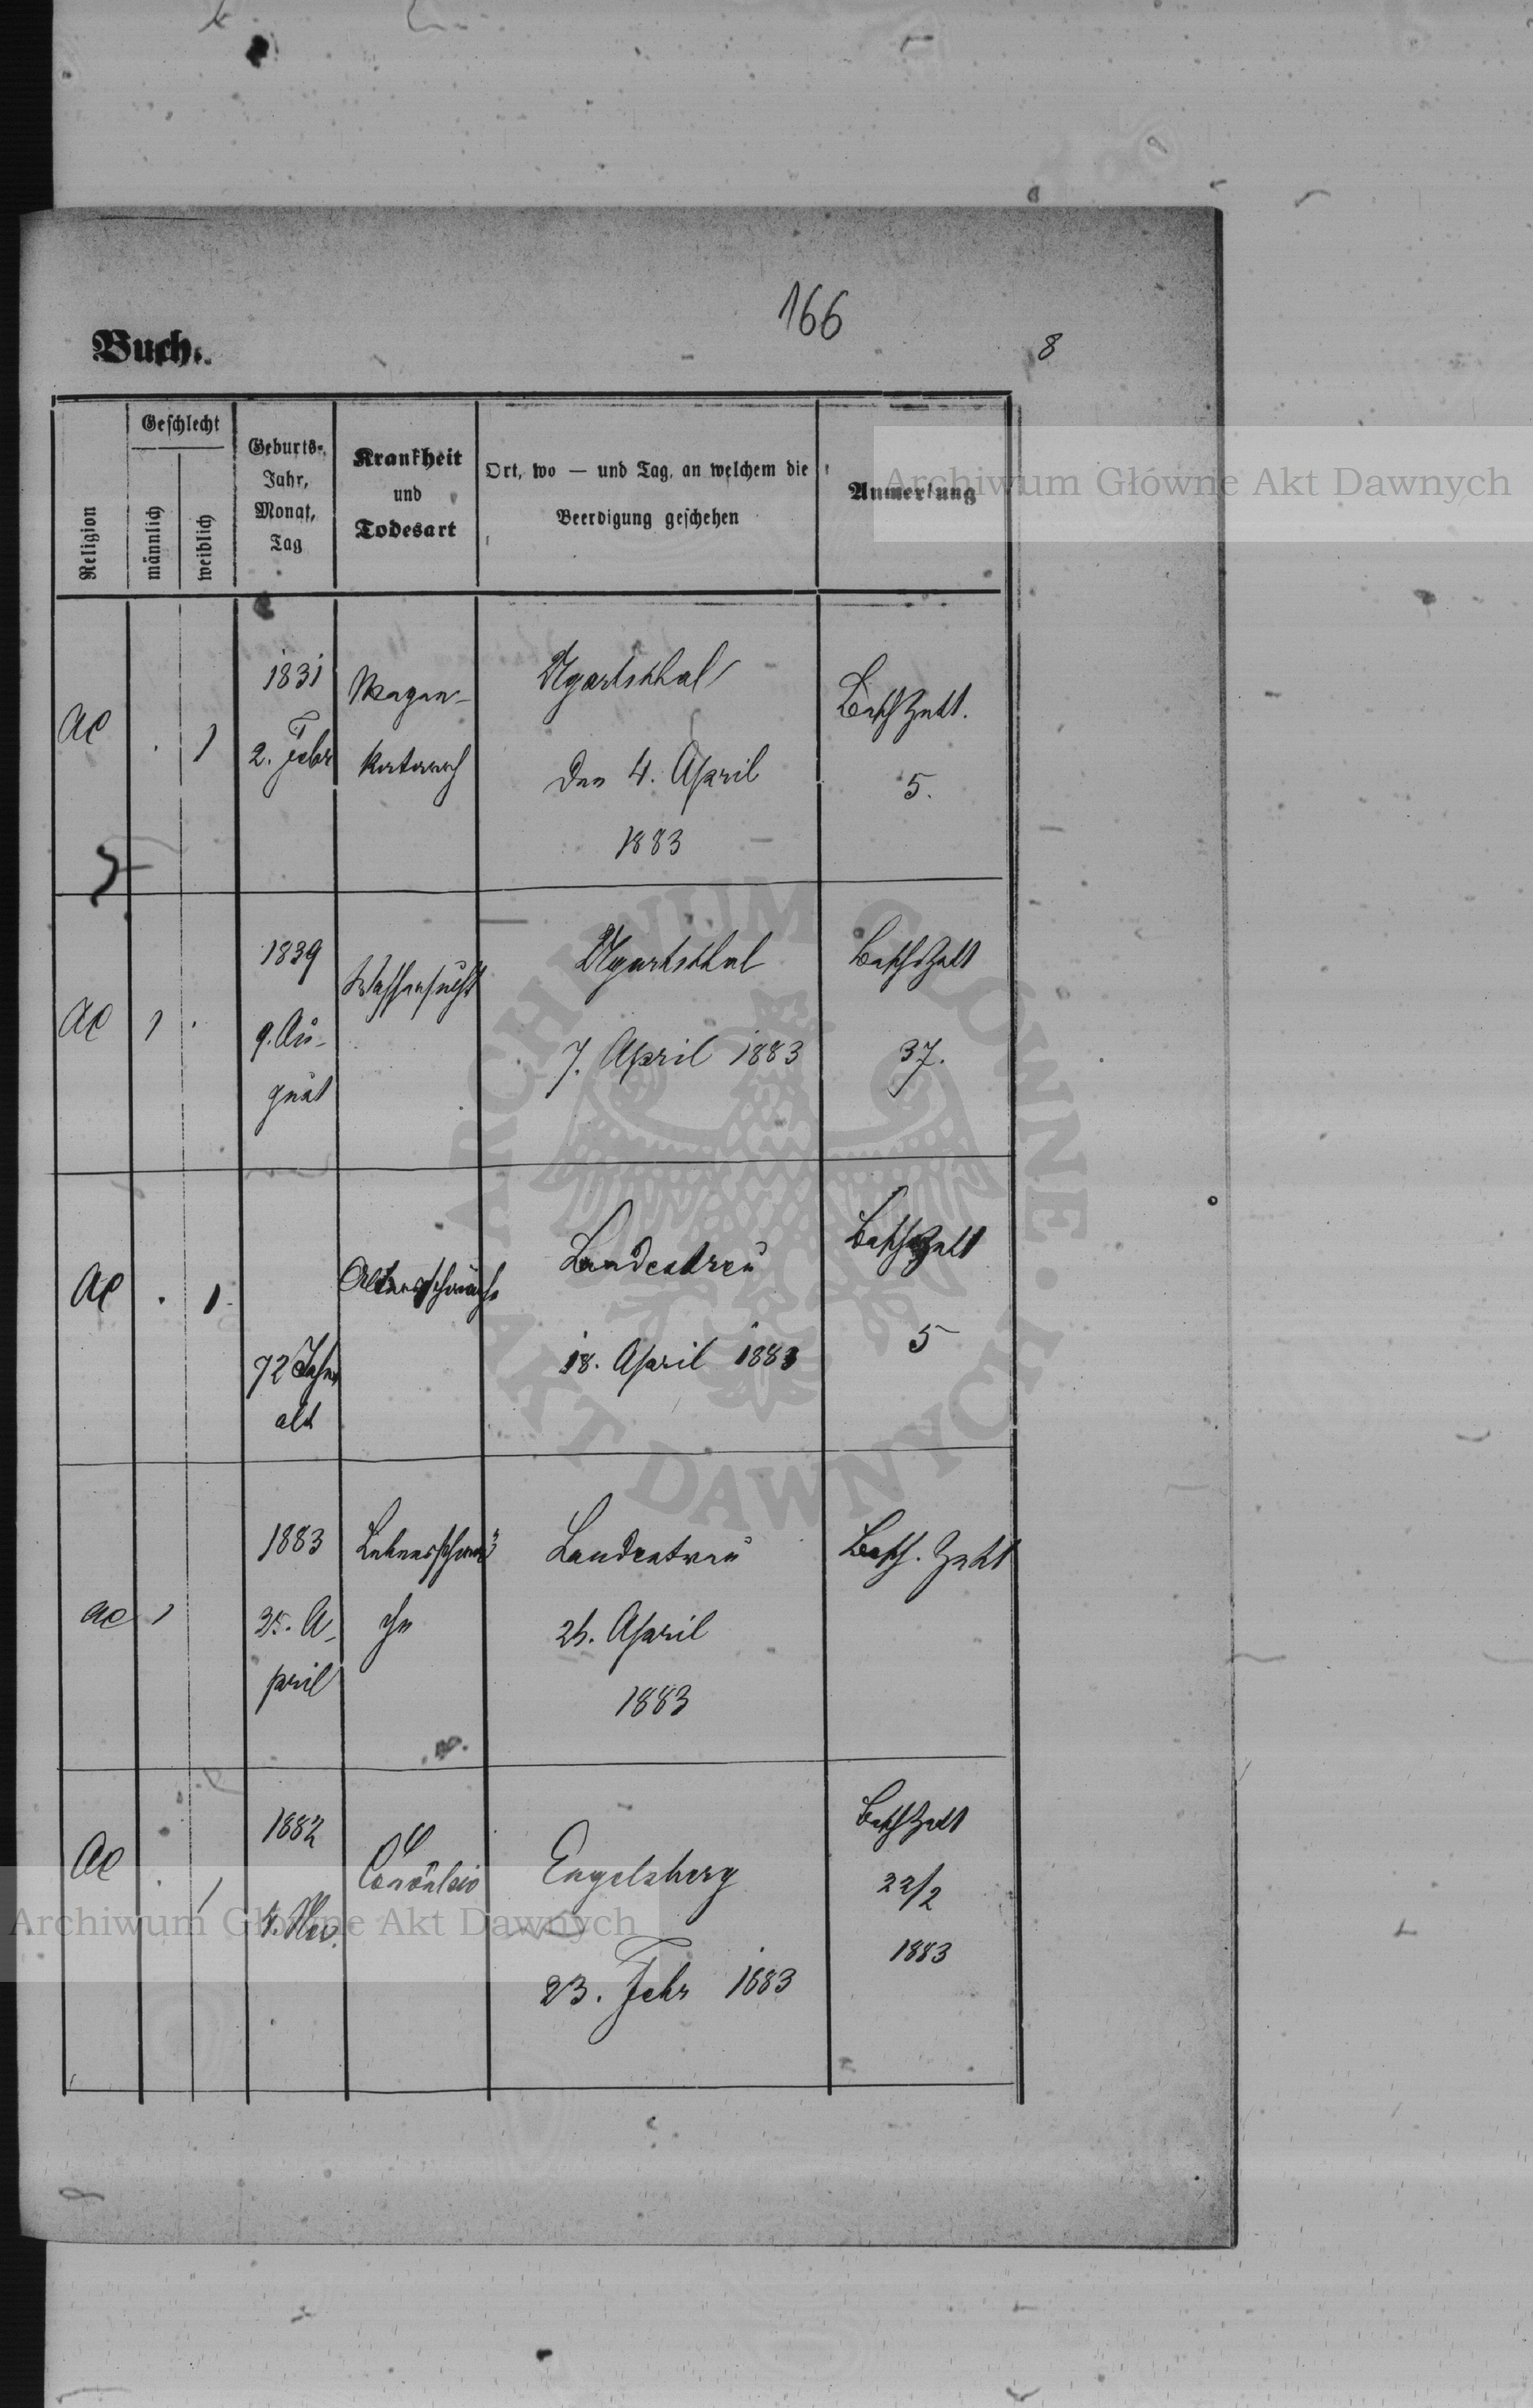 166
8
Buch.
Religion
Geschlecht
männlich
weiblich
Geburts-
Jahr,
Monat,
Tag
Krankheit
und
Todesart
Ort, wo — und Tag, an welchem die
Beerdigung geschehen
Anmerkung
Archiwum Główne Akt Dawnych
AC
1
1831
2. Febr
Magen-
katarrh
Ugartsthal
den 4. April
1883
5.
AC
1
1839
9. Au-
gust
Wassersucht
Ugartsthal
7. April 1883
37.
AC
1
72 Jahr
alt
Altersschwäche
Landestreu
18. April 1883
5
AC
1
1883
25. A-
pril
Lebensschwä-
che
Landestreu
26. April
1883
AC
1
1882
Nov.
Convulsio
Engelsberg
23. Febr 1883
22/2
1883
ARCHIWUM GŁÓWNE AKT DAWNYCH
Archiwum Główne Akt Dawnych